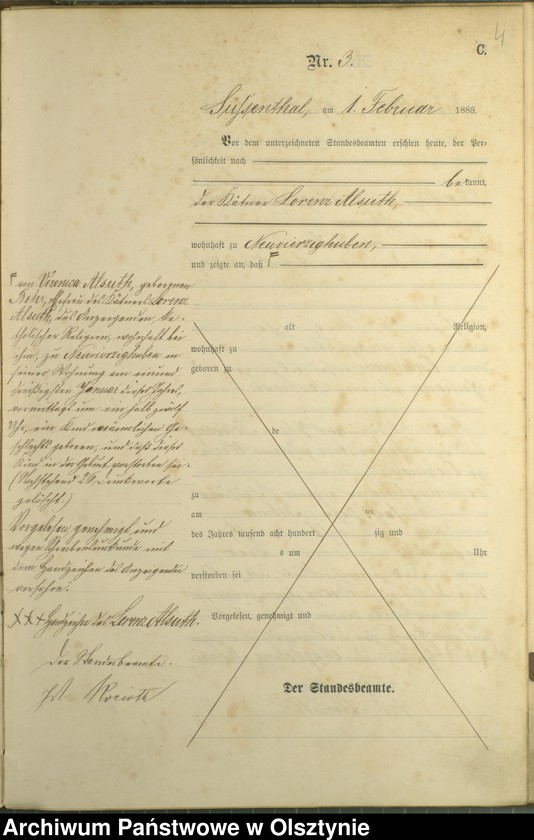 4
C.
Nr. 3.
Süssenthal, am 1. Februar 1888.
Vor dem unterzeichneten Standesbeamten erschien heute, der Per-
sönlichkeit nach
bekannt,
der Kätner Lorenz Alsuth,
wohnhaft zu Neuvierzighuben,
und zeigte an, daß
von Veronica Alsuth, geborenen
Behr, Ehefrau des Kätners Lorenz
Alsuth, des Anzeigenden, ka-
tholischer Religion, wohnhaft bei
ihm, zu Neuvierzighuben in
seiner Wohnung am einund
dreißigsten Januar dieses Jahres,
vormittags um ein halb zwölf
Uhr, ein Kind männlichen Ge-
schlechts geboren, und daß dieses
Kind in der Geburt verstorben sei.
(Nachstehend 26 Druckworte
gelöscht.)
Vorgelesen, genehmigt und
wegen Schreibensunkunde mit
dem Handzeichen des Anzeigenden
versehen.
XXX Handzeichen des Lorenz Alsuth.
Der Standesbeamte.
alt Religion,
wohnhaft zu
geboren zu
de
zu
am ten
des Jahres tausend acht hundert zig und
s um Uhr
verstorben sei
Vorgelesen, genehmigt und
Der Standesbeamte.
Archiwum Państwowe w Olsztynie